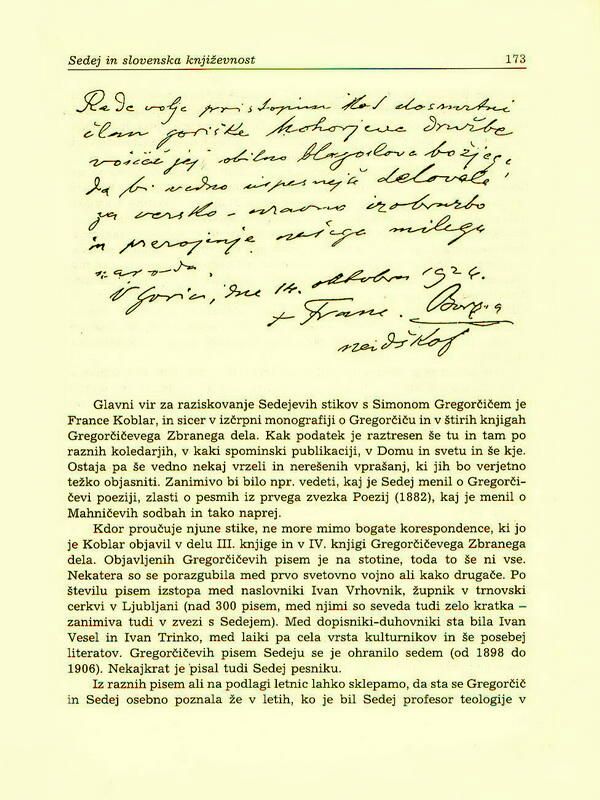 Sedej in slovenska književnost 173
Rade volje pristopim kot dosmrtni
član goriške Mohorjeve družbe
voščeč jej obilno blagoslova božjega,
da bi vedno uspešneje delovala
za versko-nravno izobrazbo
in prerojenje našega milega
naroda.
V Gorici, dne 14. oktobra 1924.
+ Franc. Borgia
nadškof
Glavni vir za raziskovanje Sedejevih stikov s Simonom Gregorčičem je
France Koblar, in sicer v izčrpni monografiji o Gregorčiču in v štirih knjigah
Gregorčičevega Zbranega dela. Kak podatek je raztresen še tu in tam po
raznih koledarjih, v kaki spominski publikaciji, v Domu in svetu in še kje.
Ostaja pa še vedno nekaj vrzeli in nerešenih vprašanj, ki jih bo verjetno
težko objasniti. Zanimivo bi bilo npr. vedeti, kaj je Sedej menil o Gregorči-
čevi poeziji, zlasti o pesmih iz prvega zvezka Poezij (1882), kaj je menil o
Mahničevih sodbah in tako naprej.
Kdor proučuje njune stike, ne more mimo bogate korespondence, ki jo
je Koblar objavil v delu III. knjige in v IV. knjigi Gregorčičevega Zbranega
dela. Objavljenih Gregorčičevih pisem je na stotine, toda to še ni vse.
Nekatera so se porazgubila med prvo svetovno vojno ali kako drugače. Po
številu pisem izstopa med naslovniki Ivan Vrhovnik, župnik v trnovski
cerkvi v Ljubljani (nad 300 pisem, med njimi so seveda tudi zelo kratka –
zanimiva tudi v zvezi s Sedejem). Med dopisniki-duhovniki sta bila Ivan
Vesel in Ivan Trinko, med laiki pa cela vrsta kulturnikov in še posebej
literatov. Gregorčičevih pisem Sedeju se je ohranilo sedem (od 1898 do
1906). Nekajkrat je pisal tudi Sedej pesniku.
Iz raznih pisem ali na podlagi letnic lahko sklepamo, da sta se Gregorčič
in Sedej osebno poznala že v letih, ko je bil Sedej profesor teologije v